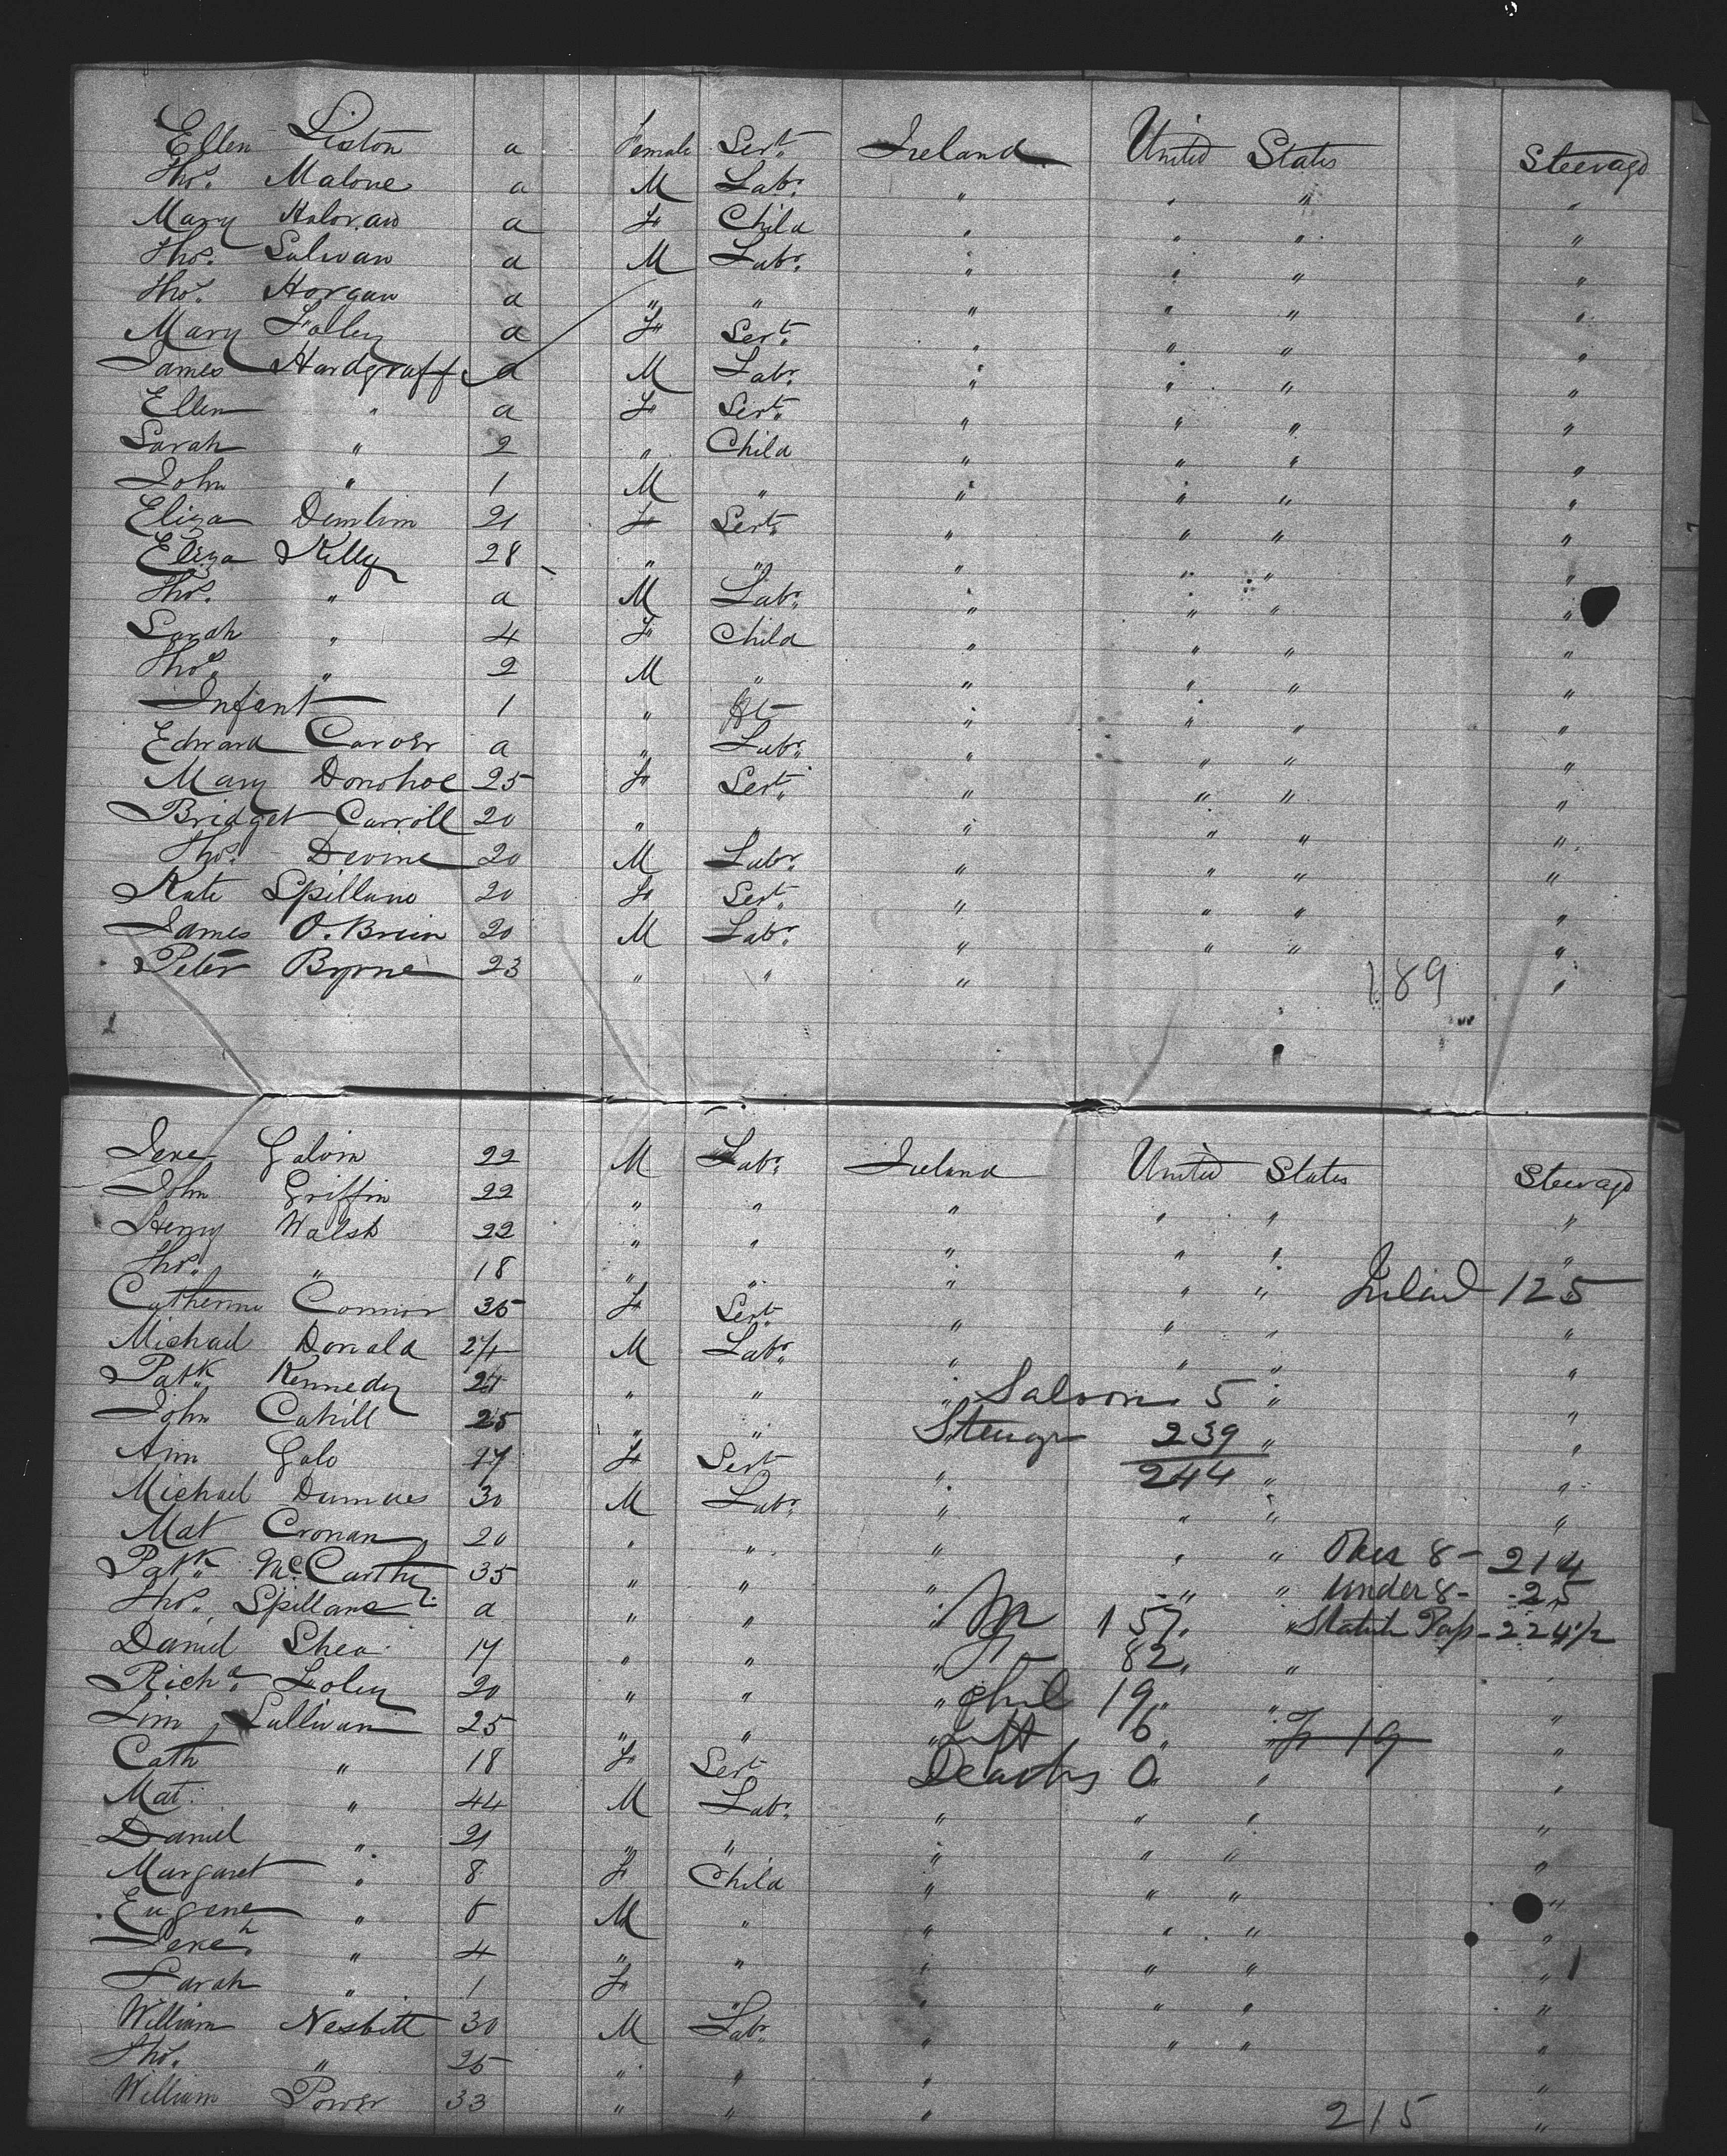 Ellen Liston a Female Sert. Ireland United States Steerage
Thos. Malone a M Labr. " " " "
Mary Haloran a F Child " " " "
Thos. Sulivan a M Labr. " " " "
Thos. Horgan a " " " " " "
Mary Folley a F Sert. " " " "
James Hardgraff a M Labr. " " " "
Ellen " a F Sert. " " " "
Sarah " 2 " Child " " " "
John " 1 M " " " " "
Eliza 21 F Sert. " " " "
Eliza Killy 28 " " " " " "
Thos. " a M Labr. " " " "
Sarah " 4 F Child " " " "
Thos. " 2 M " " " " "
Infant 1 " " " " "
Edward Carver a " Labr. " " " "
Mary Donohoe 25 F Sert. " " " "
Bridget Carroll 20 " " " " " "
Thos. Devine 20 M Labr. " " " "
Kate Spillane 20 F Sert. " " " "
James O.Brien 20 M Labr. " " " "
Peter Byrne 23 " " " 189 "
Jere Galvin 22 M Labr. Ireland United States Steerage
John Griffin 22 " " " " " "
Henry Walsh 22 " " " " " "
Thos. " 18 " " " " " Ireland 125
Catherine Connor 35 F Sert. " " " "
Michael Donald 24 M Labr. " " " "
Patk. Kennedy 24 " " " Saloon 5 " "
John Cahill 25 " " Steerage 239 " "
Ann Galo 17 F Sert " 244 " "
Michael 30 M Labr. " " " "
Mat Cronan 20 " " " " " Over 8 - 214
Patk. McCarthy 35 " " " " " Under 8 - 25
Thos. Spillane a " " " M 157 " Statute Pass - 224 1/2
Daniel Shea 17 " " " F 82 " "
Richd. Foley 20 " " " Chil 19 " "
Tim Sullivan 25 " " " Inft 6 " F 19 "
Cath " 18 F Sert Deaths 0 " "
Mat. " 44 M Labr. " " " "
Daniel " 21 " " " " " "
Margaret " 8 F Child " " " "
Eugene " 5 M " " " " "
Jereh. " 4 " " " " " "
Sarah " 1 F " " " " "
William Nesbitt 30 M Labr " " " "
Thos. " 25 " " " "
William Power 33 " " " 215 "